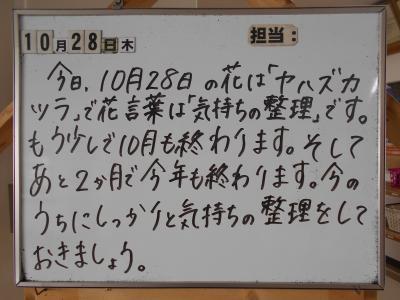 10月28日木 担当:
今日、10月28日の花は「ヤハズカ
ツラ」で花言葉は「気持ちの整理」です。
もう少しで10月も終わります。そして
あと2か月で今年も終わります。今の
うちにしっかりと気持ちの整理をして
おきましょう。